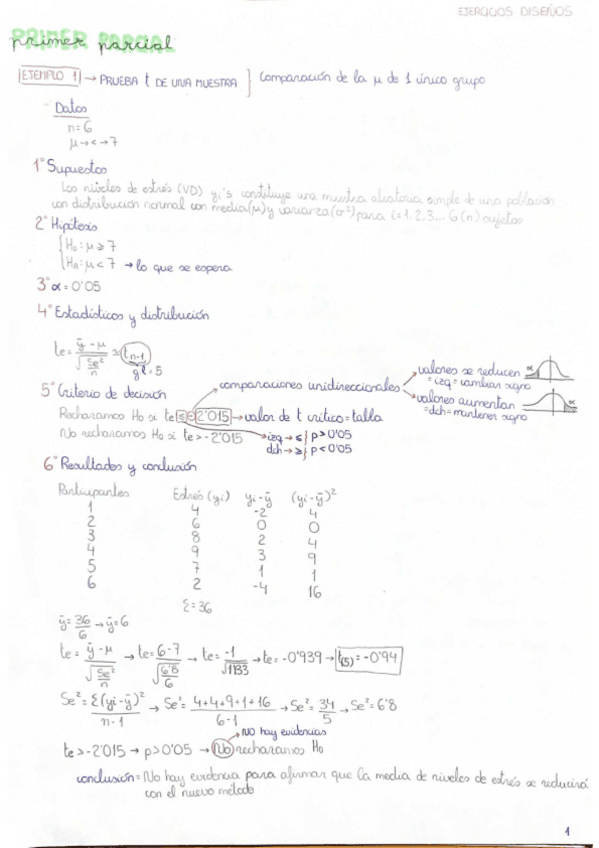 EJERCICIOS DISEÑOS
primer parcial
EJEMPLO 1 → PRUEBA t DE UNA MUESTRA } Comparación de la μ de 1 único grupo
Datos
n=6
μ→<→7
1º Supuestos
Los niveles de estrés (VD) yi's constituye una muestra aleatoria simple de una población
con distribución normal con media(μ) y varianza(σ²) para i=1,2,3... 6(n) sujetos
2º Hipótesis
{H₀: μ ≥ 7
{HA: μ < 7 → lo que se espera
3º α = 0'05
4º Estadísticos y distribución
te = ȳ - μ / √(Se²/n) ≈ tn-1
gl = 5
5º Criterio de decisión
comparaciones unidireccionales
valores se reducen
= izq = cambiar signo
α
valores aumentan
= dch = mantener signo
α
Rechazamos H₀ si te ≤ -2'015 → valor de t crítico = tabla
No rechazamos H₀ si te > -2'015
izq → ≤ } p > 0'05
dch → ≥ } p < 0'05
6º Resultados y conclusión
Participantes Estrés (yi) yi-ȳ (yi-ȳ)²
1 4 -2 4
2 6 0 0
3 8 2 4
4 9 3 9
5 7 1 1
6 2 -4 16
Σ=36
ȳ = 36/6 → ȳ = 6
te = ȳ - μ / √(Se²/n) → te = 6-7 / √(6'8/6) → te = -1 / √1'133 → te = -0'939 → t(5) = -0'94
Se² = Σ(yi-ȳ)² / n-1 → Se² = 4+4+9+1+16 / 6-1 → Se² = 34/5 → Se² = 6'8
No hay evidencias
te > -2'015 → p > 0'05 → No rechazamos H₀
conclusión = No hay evidencia para afirmar que la media de niveles de estrés se reducirá
con el nuevo método
1